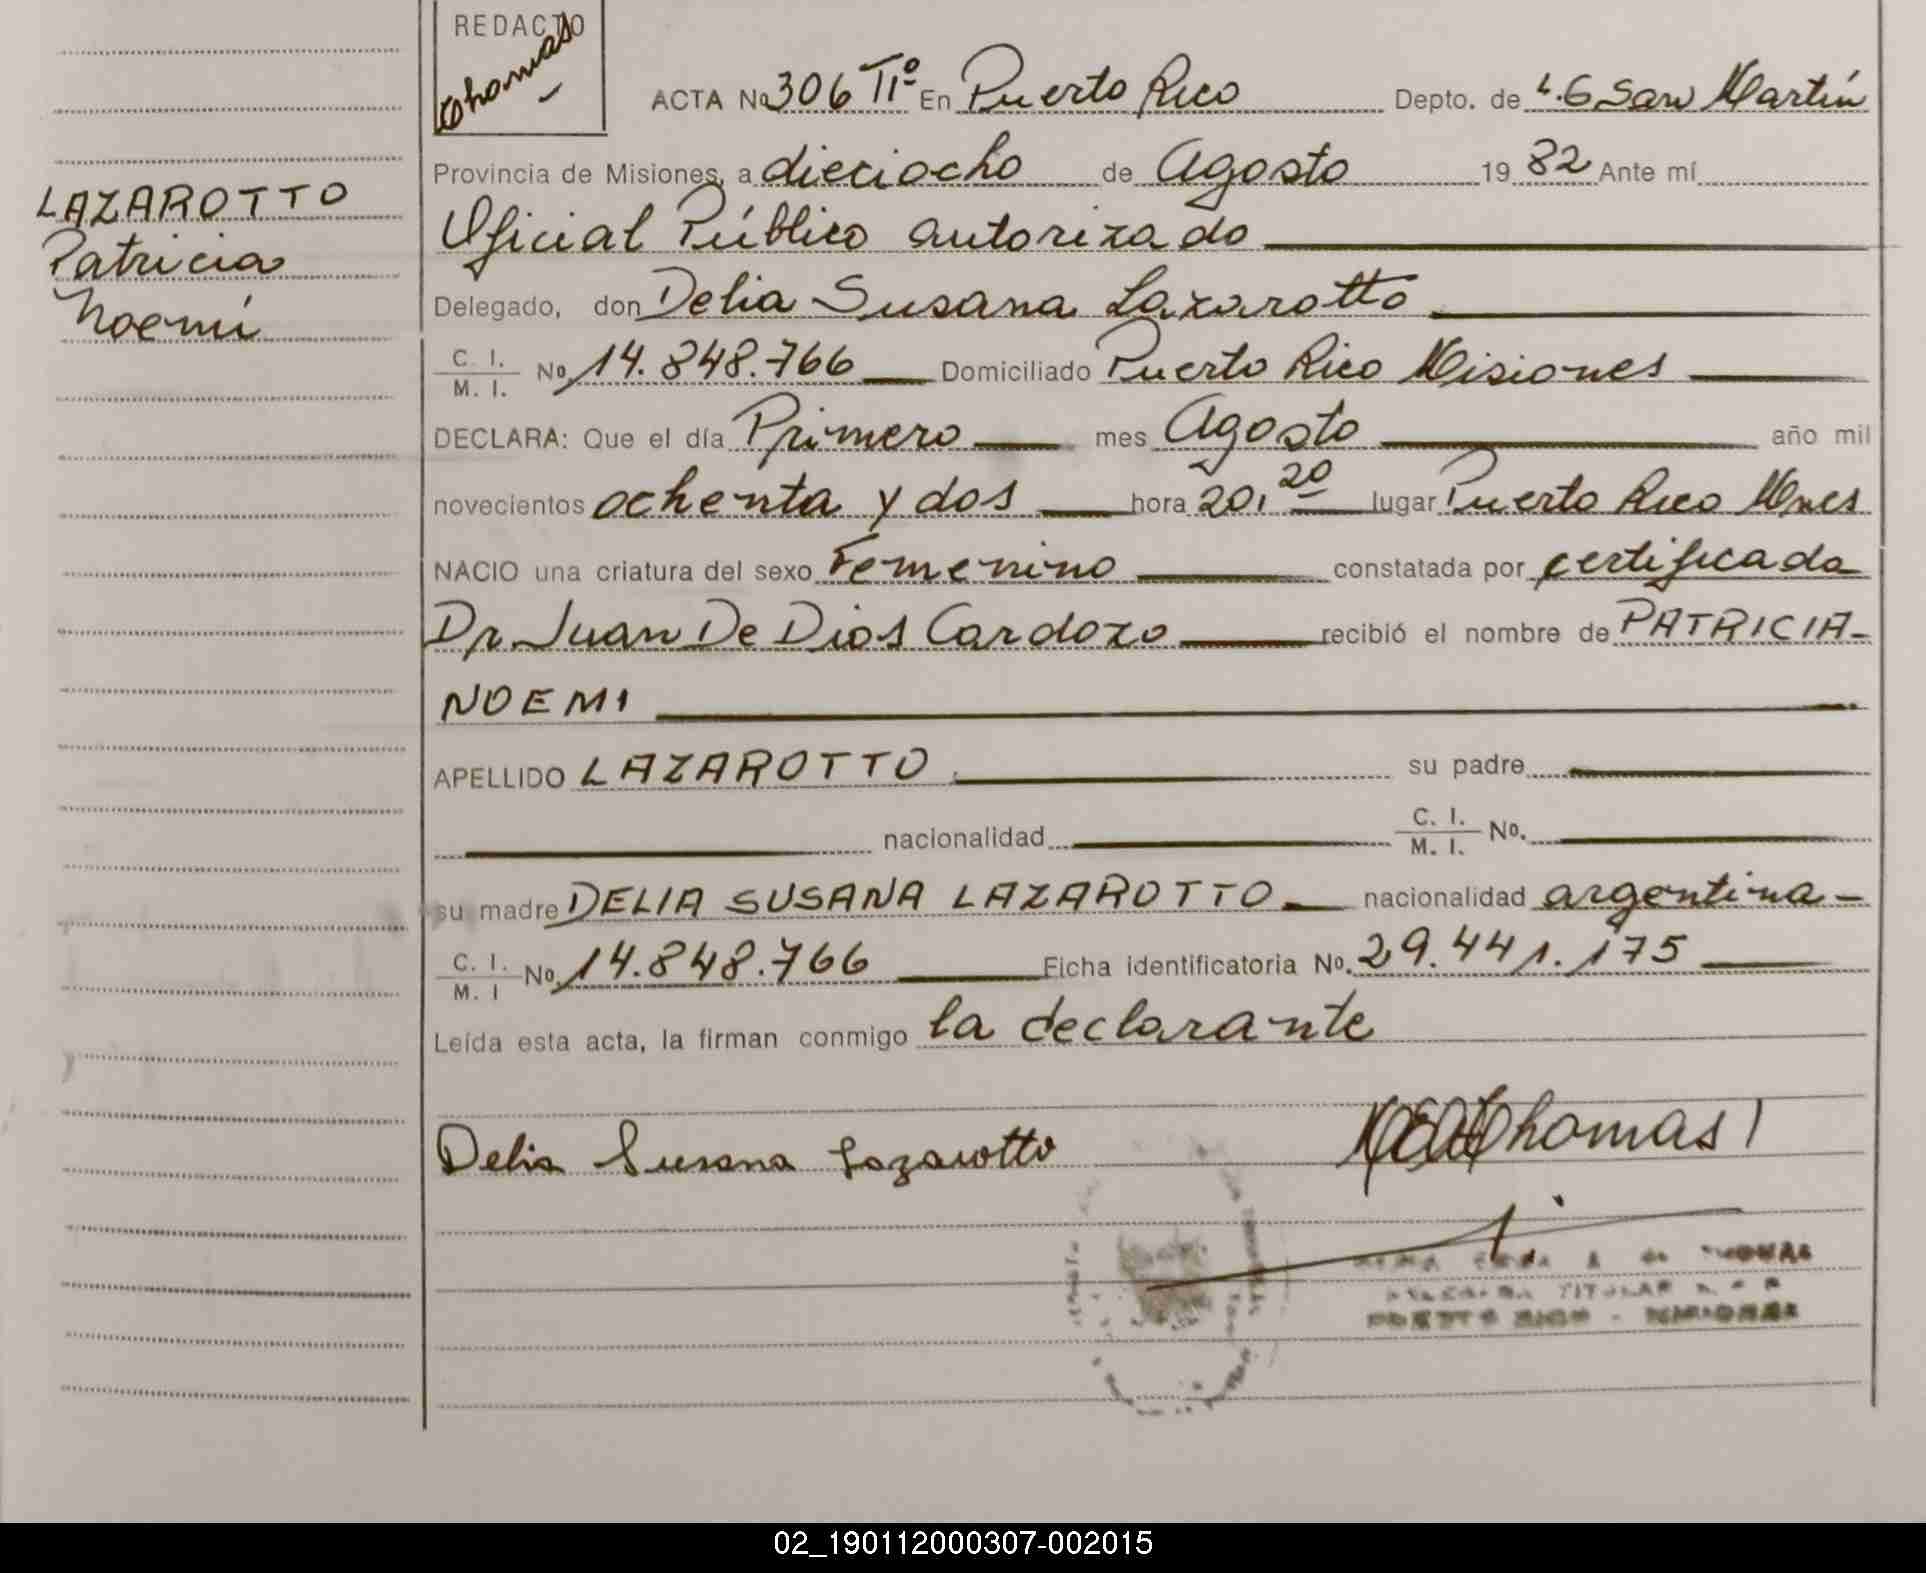 REDACTO
Thomas
ACTA No 306 TIº En Puerto Rico Depto. de L.G San Martín
Provincia de Misiones, a dieciocho de Agosto 19 82 Ante mí
Oficial Público autorizado
LAZAROTTO
Patricia
Noemí
Delegado, don Delia Susana Lazarotto
C. I. / M. I. No. 14.848.766 Domiciliado Puerto Rico Misiones
DECLARA: Que el día Primero mes Agosto año mil
novecientos ochenta y dos hora 20,20 lugar Puerto Rico Mnes
NACIO una criatura del sexo Femenino constatada por certificada
Dr. Juan De Dios Cardozo recibió el nombre de PATRICIA
NOEMI
APELLIDO LAZAROTTO su padre
nacionalidad C. I. / M. I. No.
su madre DELIA SUSANA LAZAROTTO nacionalidad argentina
C. I. / M. I No. 14.848.766 Ficha identificatoria No. 29.441.175
Leída esta acta, la firman conmigo la declarante
Delia Susana Lazarotto
Thomas
THOMAS
TITULAR
PUERTO RICO - MISIONES
02_190112000307-002015